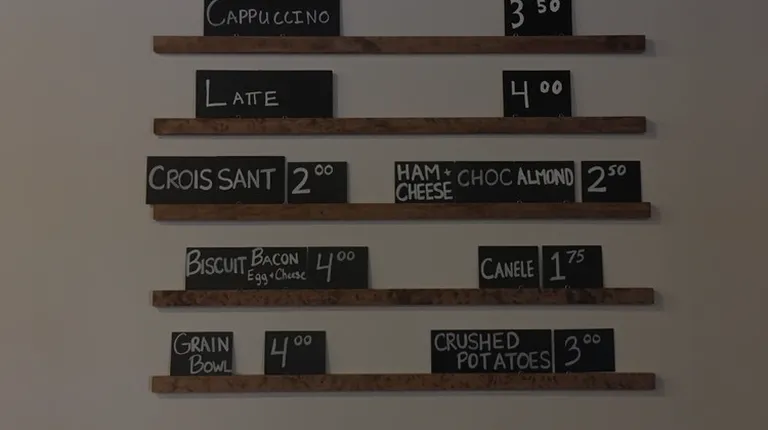 CAPPUCCINO 3 50
LATTE 4 00
CROISSANT 2 00 HAM + CHEESE CHOC ALMOND 2 50
BISCUIT BACON Egg + Cheese 4 00 CANELE 1 75
GRAIN BOWL 4 00 CRUSHED POTATOES 3 00